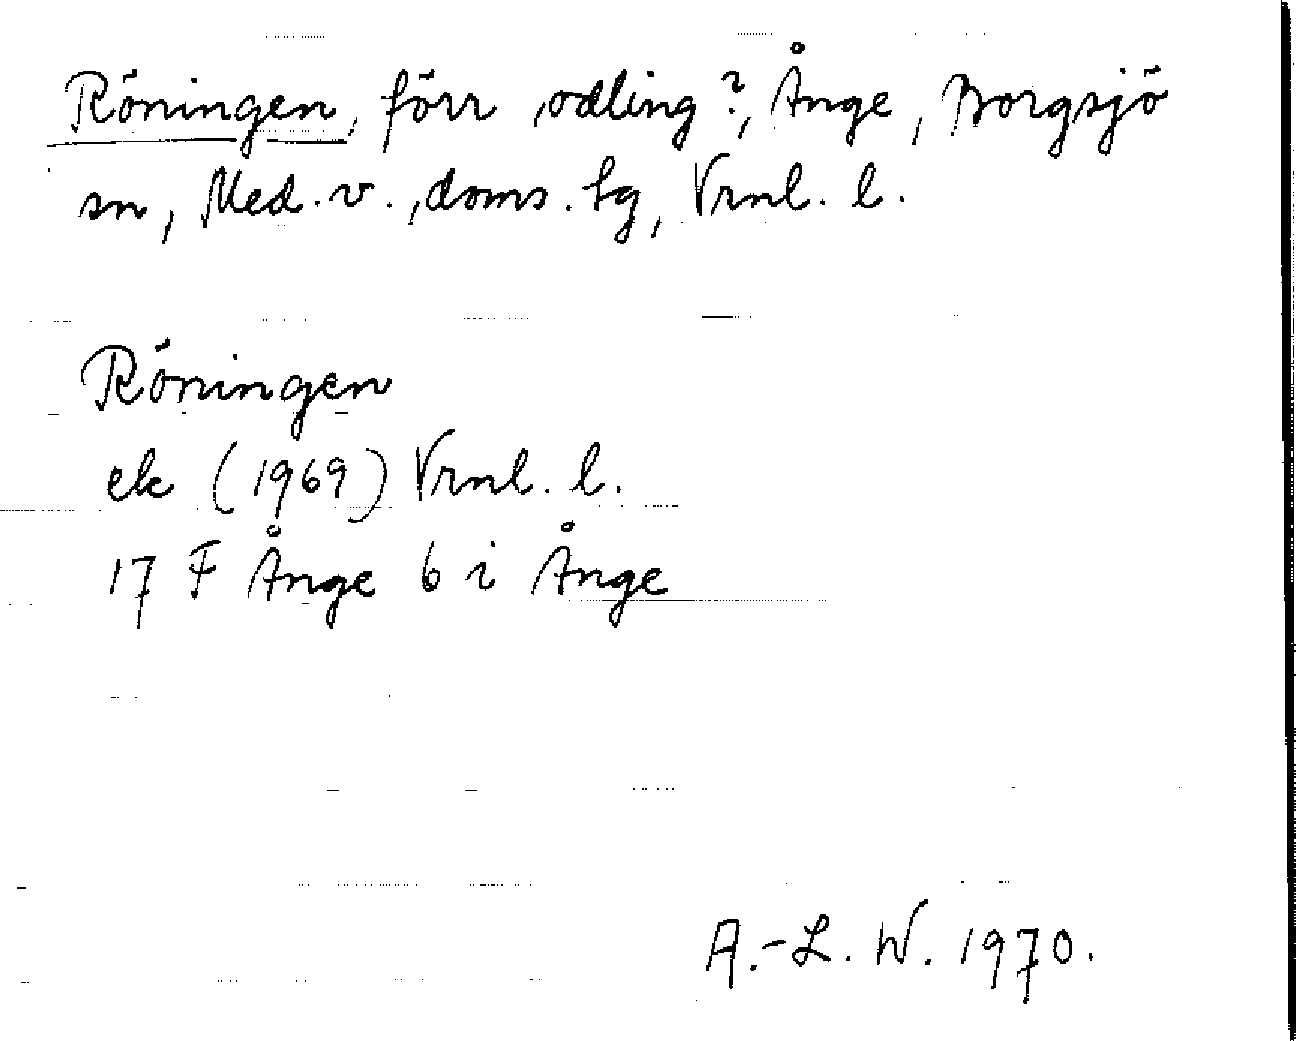 Röningen, förr odling?, Ånge, Borgsjö
sn, Med. v., doms. tg, Vrnl. l.
Röningen
ek (1969) Vrnl. l.
17 F Ånge 6 i Ånge
A.-L. W. 1970.